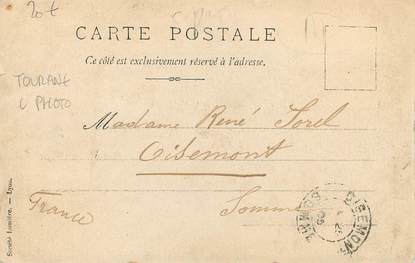 20t
CARTE POSTALE
Ce côté est exclusivement réservé à l'adresse.
TOURANE
PHOTO
Madame René Sorel
Oisemont
Somme
France
Société Lumière. — Lyon.
OISEMONT
SOMME